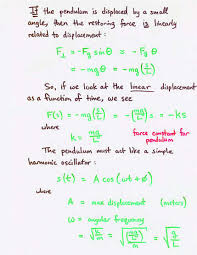 If the pendulum is displaced by a small
angle, then the restoring force is linearly
related to displacement:
F⊥ = -Fg sin θ ≈ -Fg θ
= -mg θ = -mg (s/L)
So, if we look at the linear displacement
as a function of time, we see
F(s) = -mg(s/L) = -(mg/L)s = -ks
where
k = mg/L force constant for
pendulum
The pendulum must act like a simple
harmonic oscillator:
s(t) = A cos(ωt + φ)
where
A = max displacement (meters)
ω = angular frequency
= √(k/m) = √((mg/L)/m) = √(g/L)